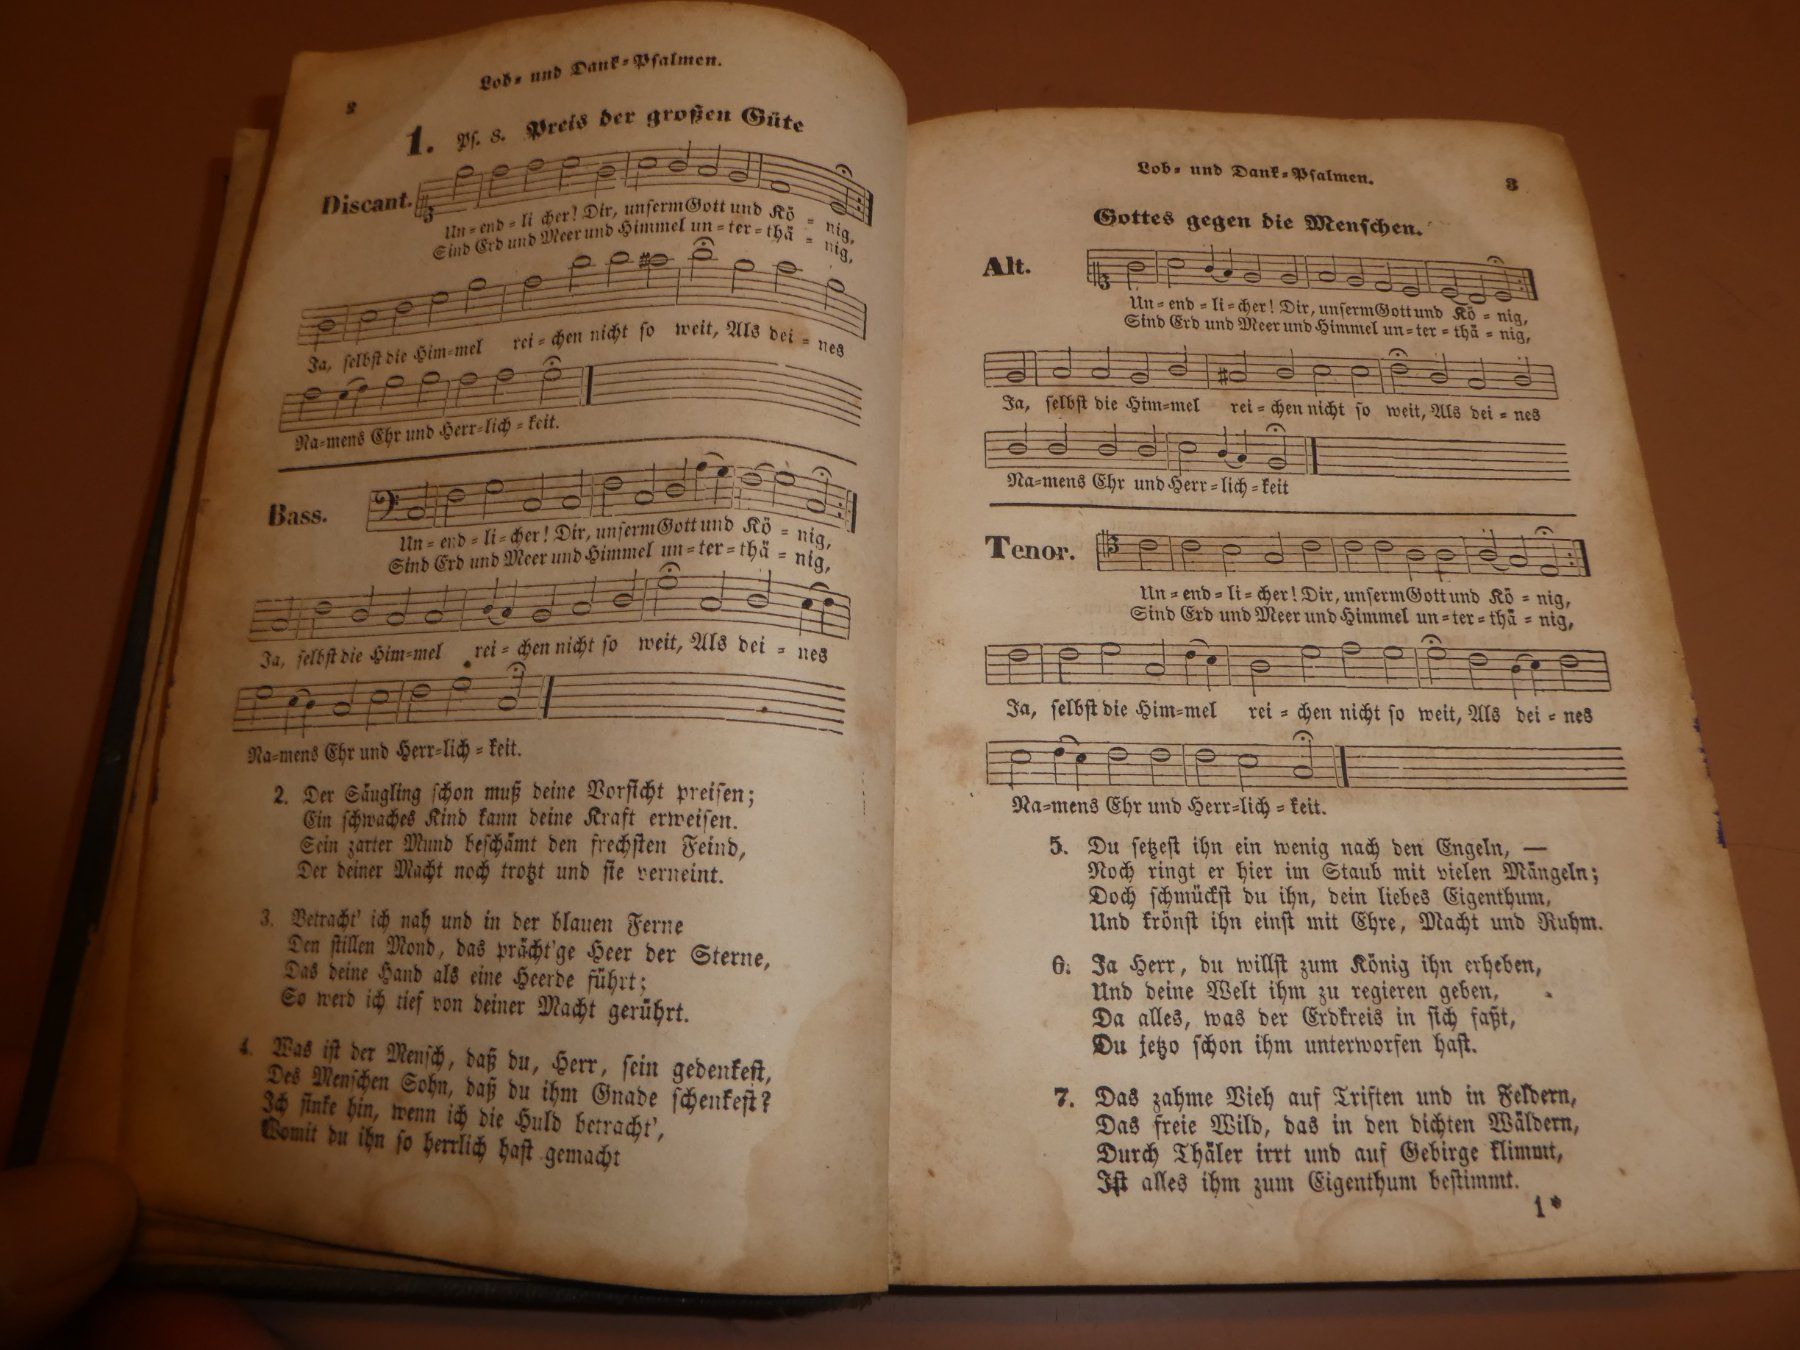 2
Lob- und Dank-Psalmen.
1. Ps. 8. Preis der großen Güte
Discant.
Un-end-li cher! Dir, unserm Gott und Kö-nig,
Sind Erd und Meer und Himmel un-ter-thä-nig,
Ja, selbst die Him-mel rei-chen nicht so weit, Als dei-nes
Na-mens Ehr und Herr-lich-keit.
Bass.
Un-end-li-cher! Dir, unserm Gott und Kö-nig,
Sind Erd und Meer und Himmel un-ter-thä-nig,
Ja, selbst die Him-mel rei-chen nicht so weit, Als dei-nes
Na-mens Ehr und Herr-lich-keit.
2. Der Säugling schon muß deine Vorsicht preisen;
Ein schwaches Kind kann deine Kraft erweisen.
Sein zarter Mund beschämt den frechsten Feind,
Der deiner Macht noch trotzt und sie verneint.
3. Betracht' ich nah und in der blauen Ferne
Den stillen Mond, das prächt'ge Heer der Sterne,
Das deine Hand als eine Heerde führt;
So werd ich tief von deiner Macht gerührt.
4. Was ist der Mensch, daß du, Herr, sein gedenkest,
Des Menschen Sohn, daß du ihm Gnade schenkest?
Ich sinke hin, wenn ich die Huld betracht',
Womit du ihn so herrlich hast gemacht
Lob- und Dank-Psalmen.
3
Gottes gegen die Menschen.
Alt.
Un-end-li-cher! Dir, unserm Gott und Kö-nig,
Sind Erd und Meer und Himmel un-ter-thä-nig,
Ja, selbst die Him-mel rei-chen nicht so weit, Als dei-nes
Na-mens Ehr und Herr-lich-keit
Tenor.
Un-end-li-cher! Dir, unserm Gott und Kö-nig,
Sind Erd und Meer und Himmel un-ter-thä-nig,
Ja, selbst die Him-mel rei-chen nicht so weit, Als dei-nes
Na-mens Ehr und Herr-lich-keit.
5. Du setzest ihn ein wenig nach den Engeln, —
Noch ringt er hier im Staub mit vielen Mängeln;
Doch schmückst du ihn, dein liebes Eigenthum,
Und krönst ihn einst mit Ehre, Macht und Ruhm.
6. Ja Herr, du willst zum König ihn erheben,
Und deine Welt ihm zu regieren geben,
Da alles, was der Erdkreis in sich faßt,
Du jetzo schon ihm unterworfen hast.
7. Das zahme Vieh auf Triften und in Feldern,
Das freie Wild, das in den dichten Wäldern,
Durch Thäler irrt und auf Gebirge klimmt,
Ist alles ihm zum Eigenthum bestimmt.
1*